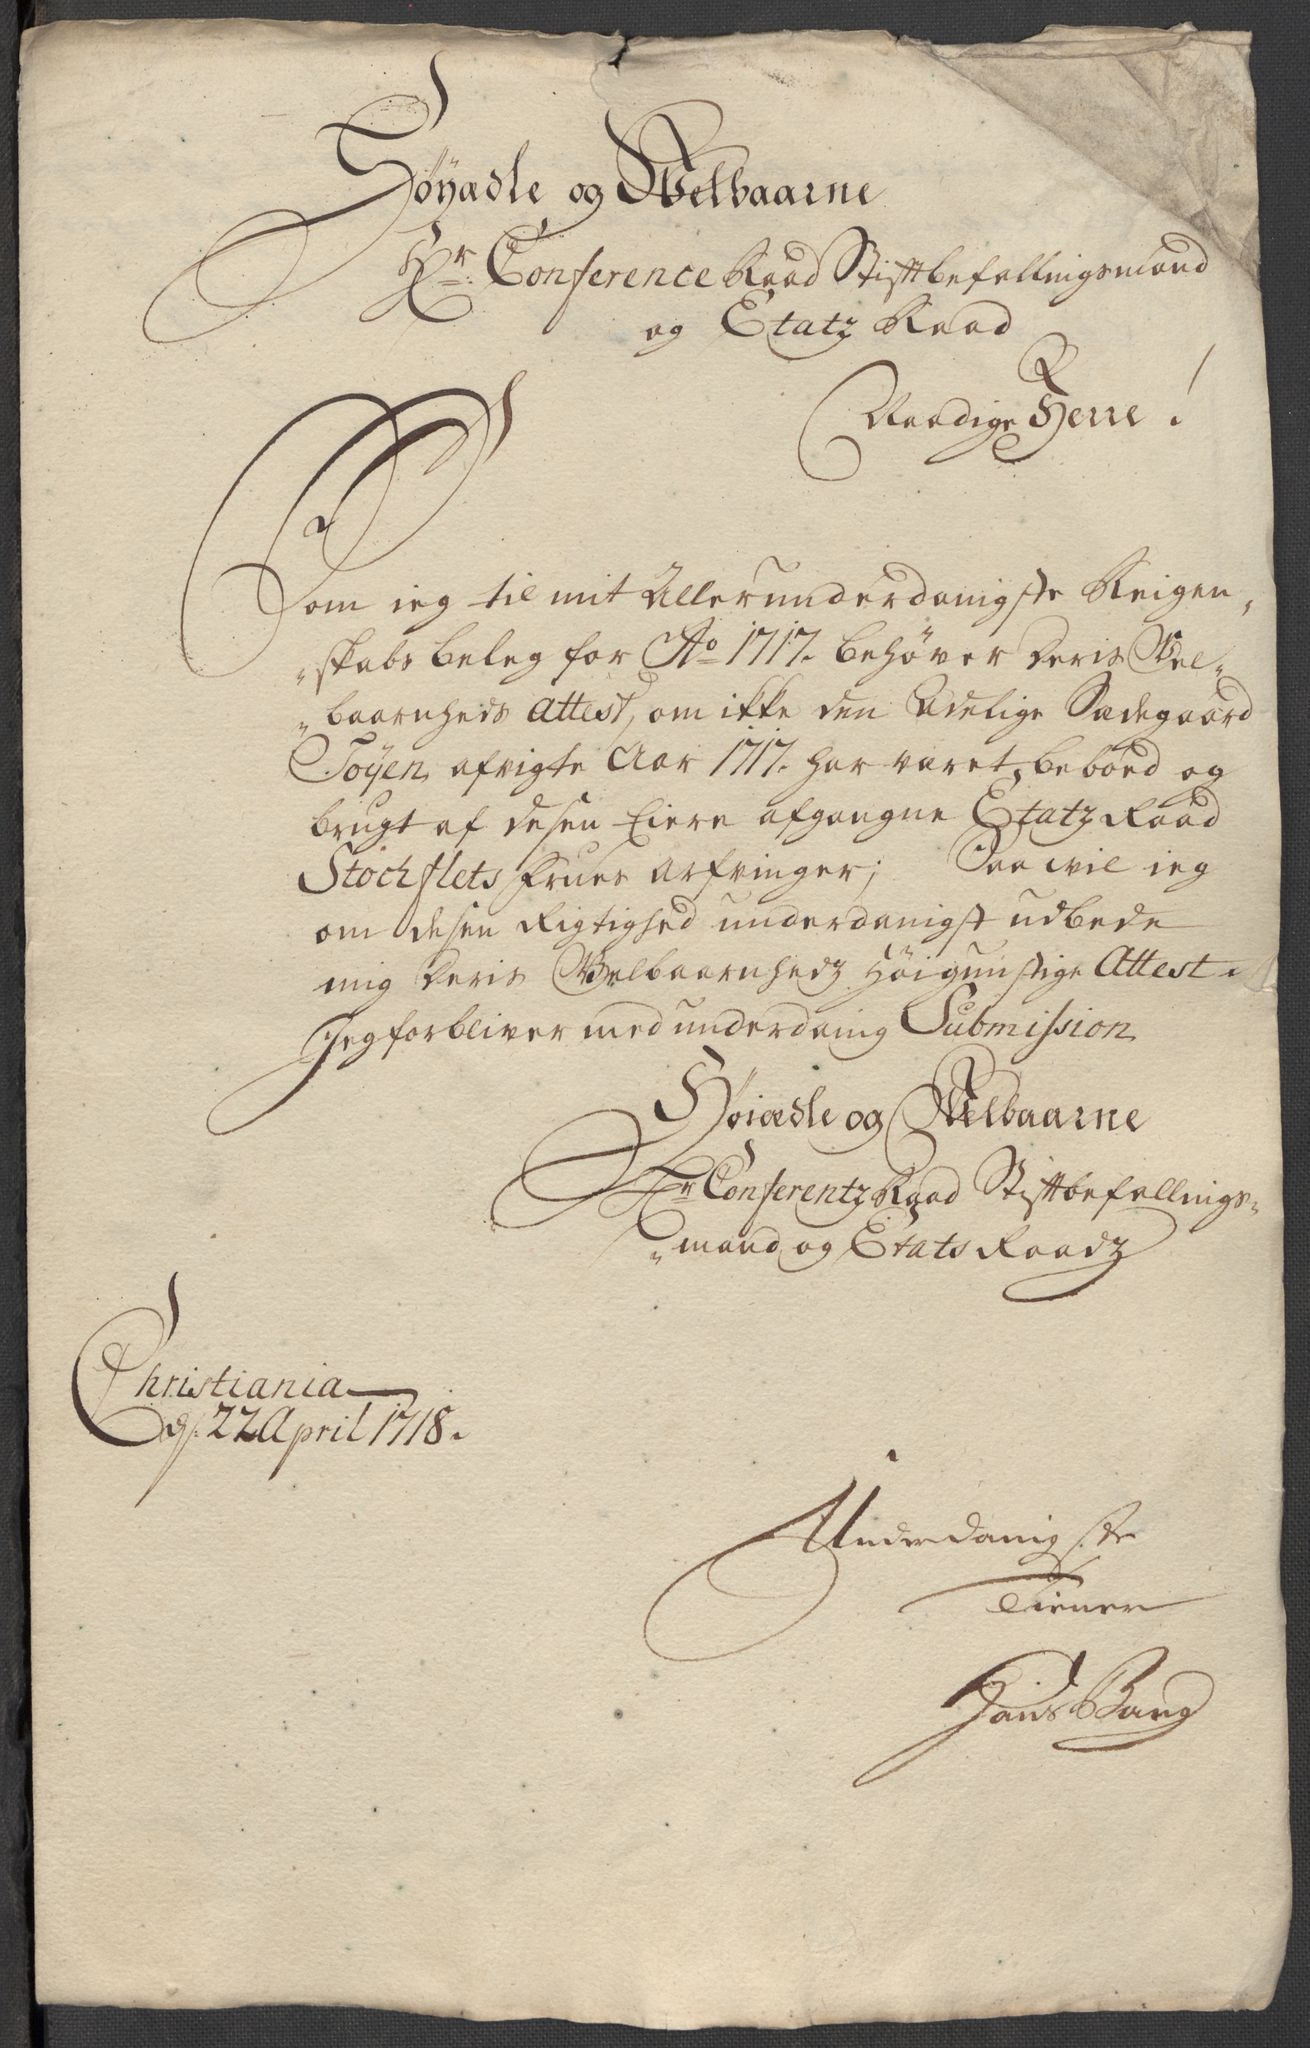 Höÿædle og Welbaarne
Hr. Conference Raad Stifftbefallingsmand
og Etatz Raad
Naadige Herre!
Som ieg til mit Allerunderdanigste Reigen„
„skabs beleg for Ao 1717. behøver Deris Wel„
„baarnheds Attest, om ikke den Adelige Sædegaard
Töÿen afvigte Aar 1717. har været beboed og
brugt af desen Eiere afgangne Etatz Raad
Stochflets Frues Arfvinger; Saa wil ieg
om desen Rigtighed underdanigst udbede
mig Deris Welbaarnhedz Høigunstige Attest.
Jeg forbliver med underdanig Submission
Høiædle og Welbaarne
Hr Conferentz Raad Stifftbefallings„
„mand og Etats Raadz
Christiania
d. 22 April 1718.
Underdanigste
Tiener
Hans Bang